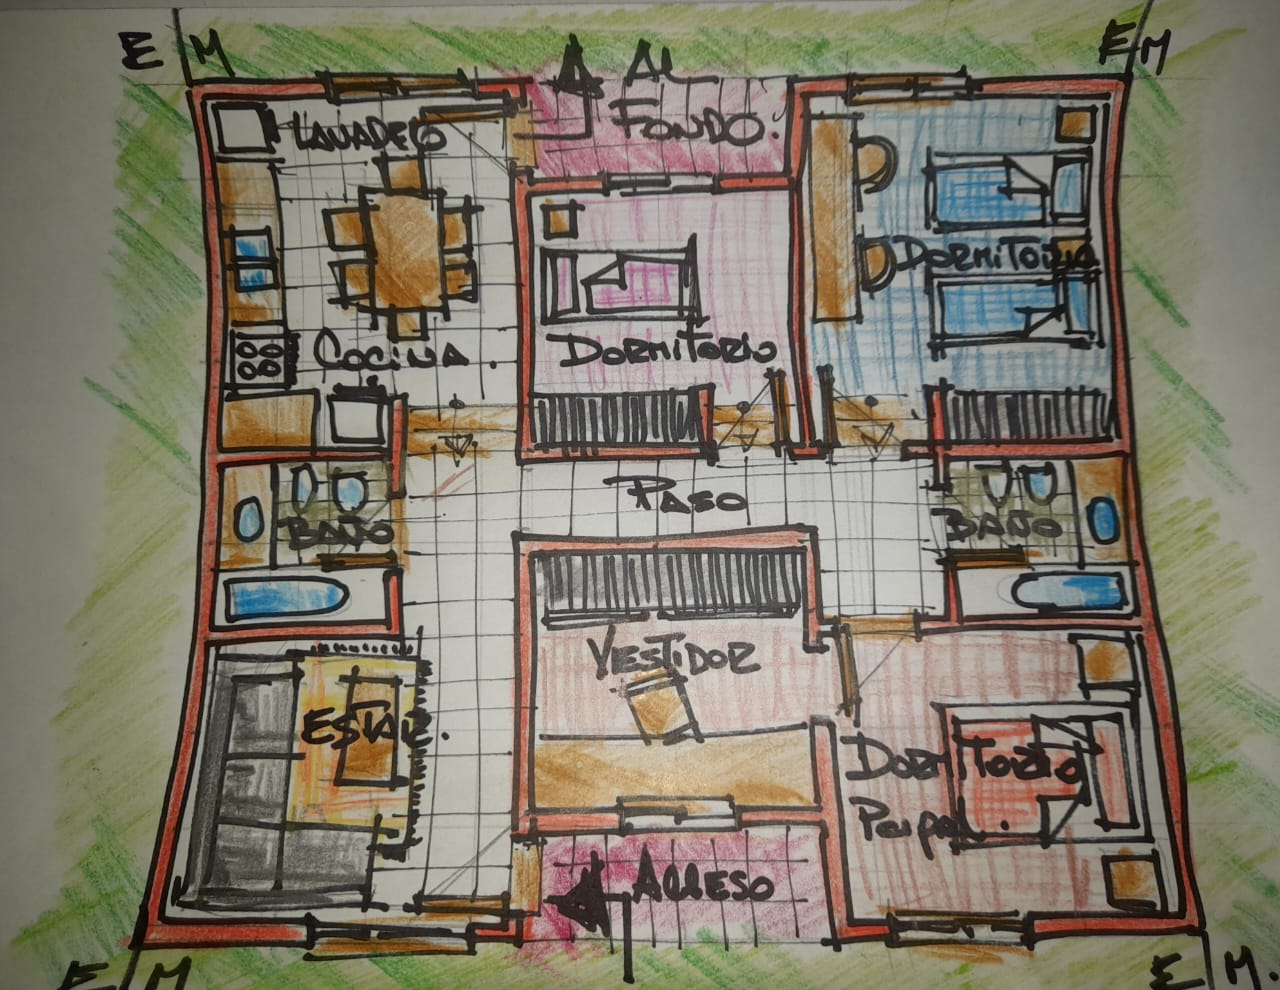 E M
AL
FONDO.
E M
LAVADERO
DORMITORIO
COCINA.
DORMITORIO
PASO
BAÑO
BAÑO
VESTIDOR
ESTAR.
DORMITORIO
Ppal.
ACCESO
E M
E M.